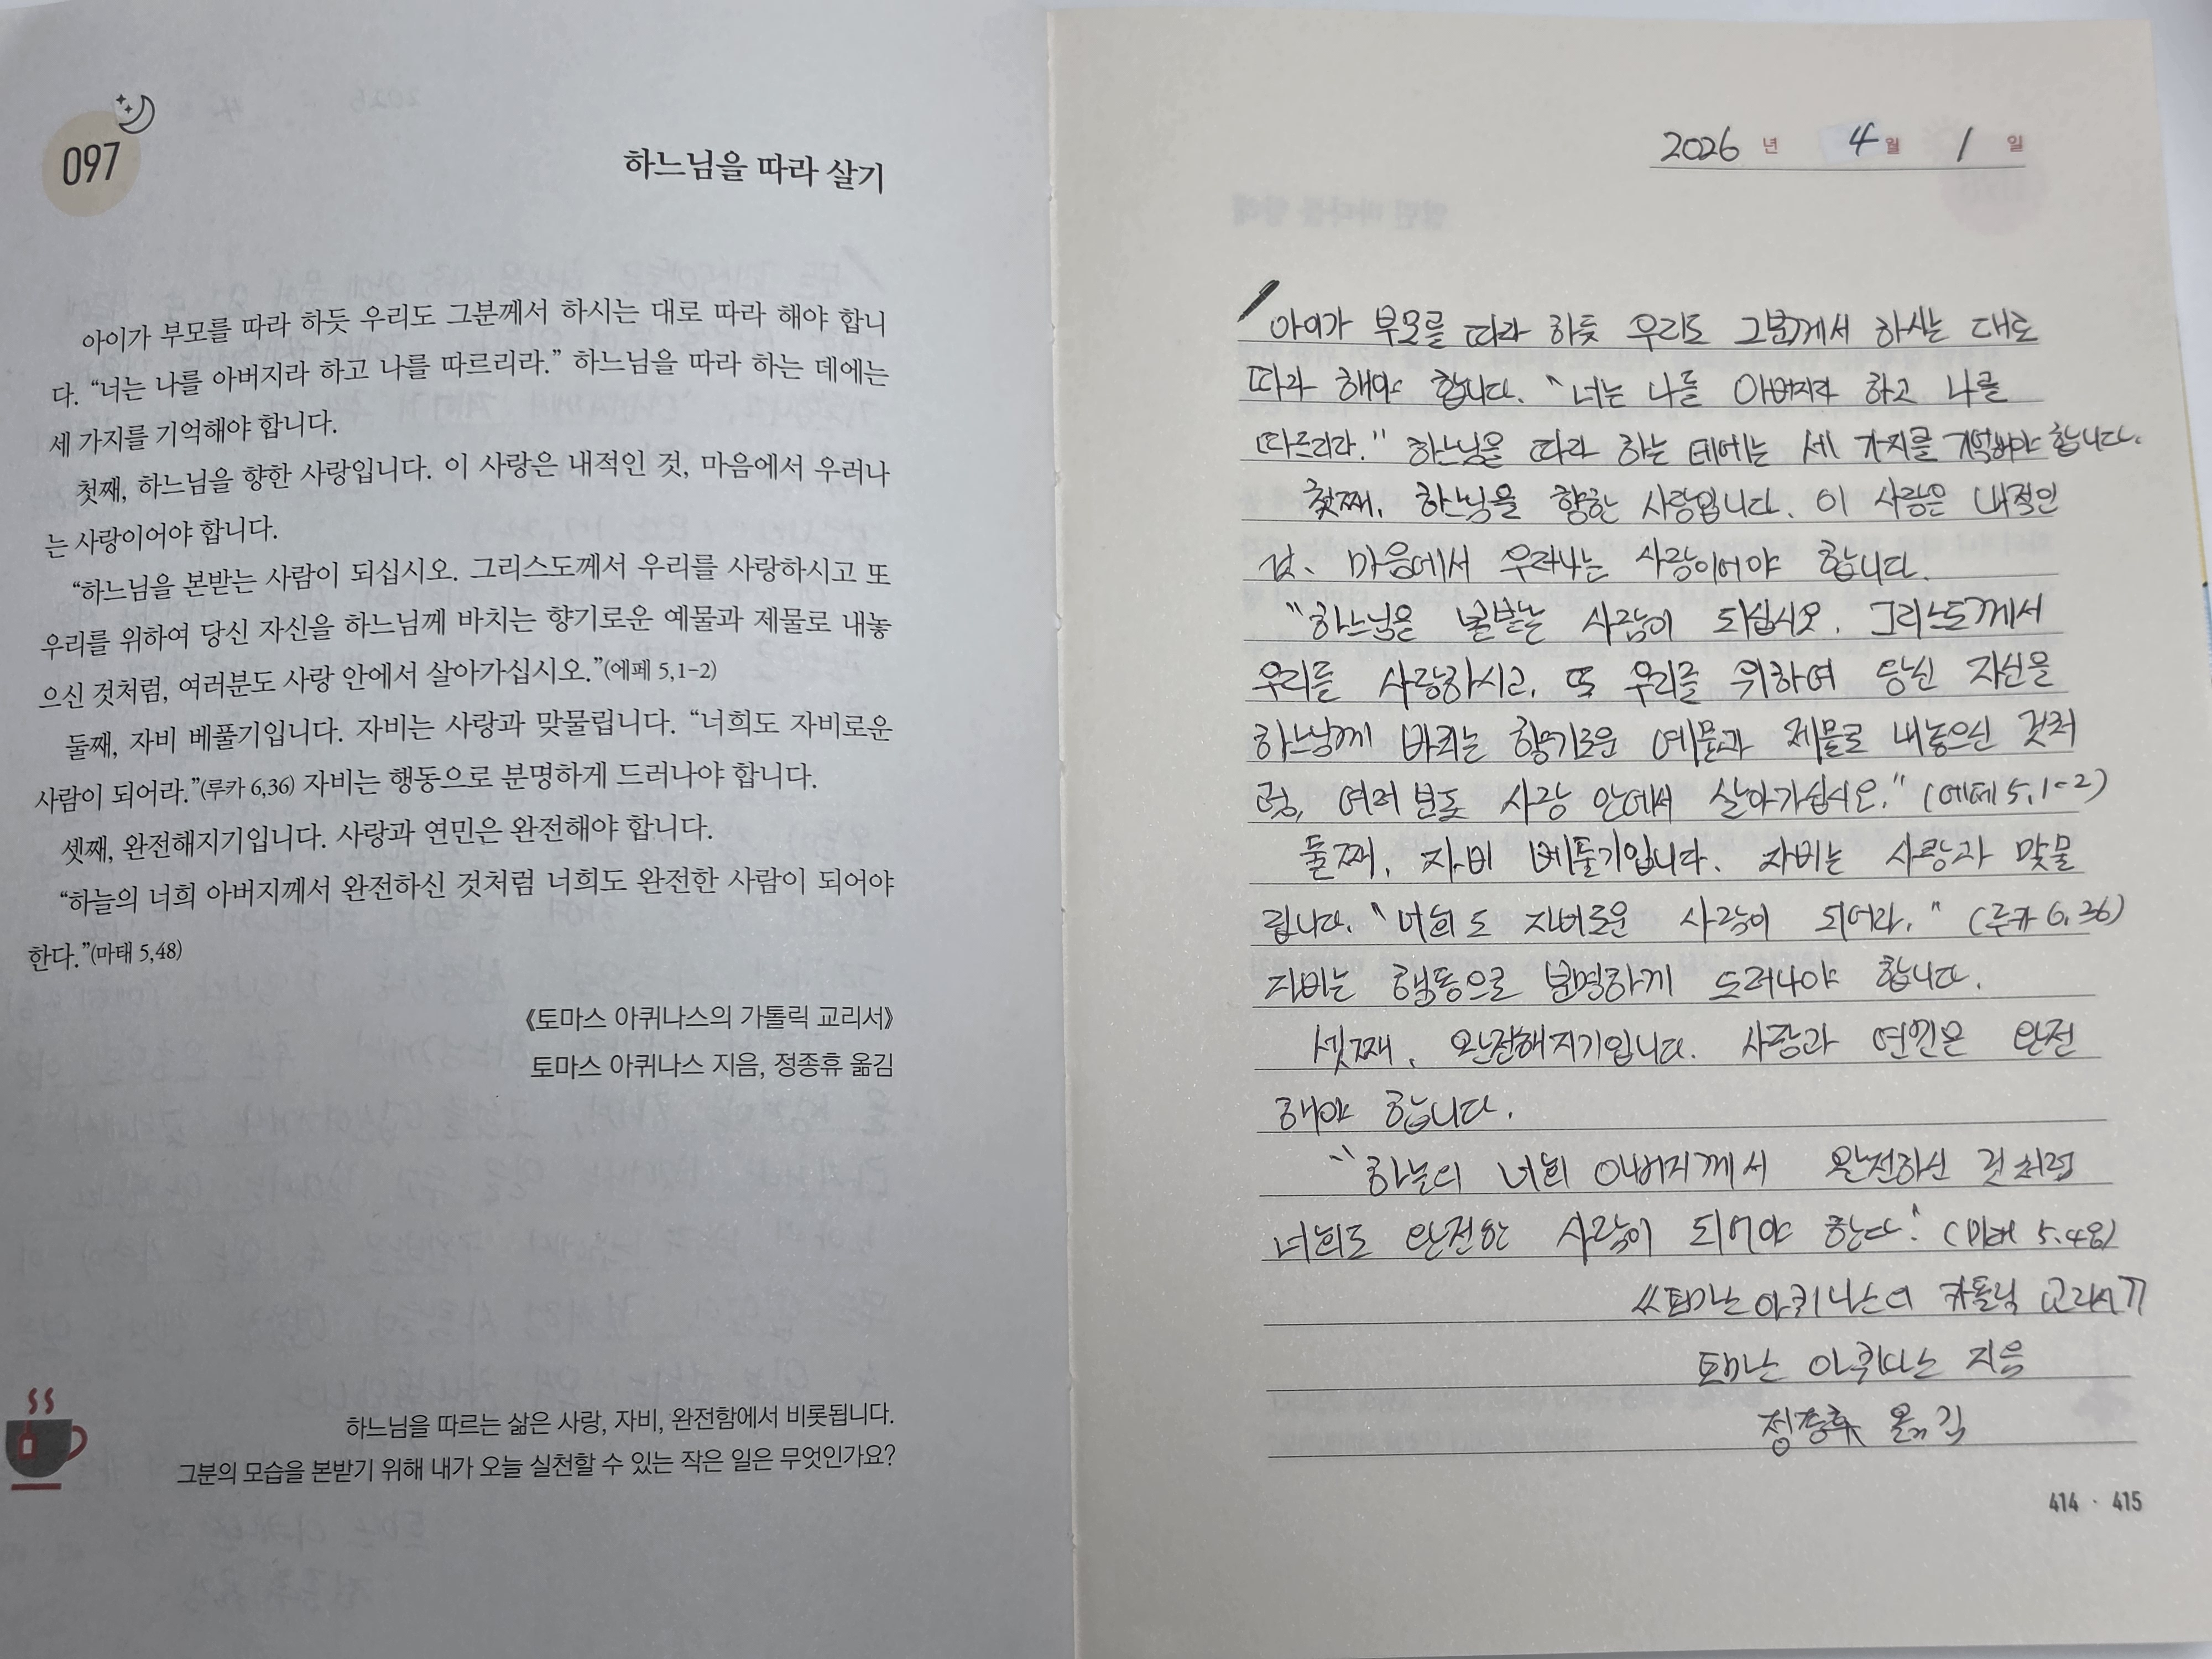 097
하느님을 따라 살기
아이가 부모를 따라 하듯 우리도 그분께서 하시는 대로 따라 해야 합니
다. “너는 나를 아버지라 하고 나를 따르리라.” 하느님을 따라 하는 데에는
세 가지를 기억해야 합니다.
첫째, 하느님을 향한 사랑입니다. 이 사랑은 내적인 것, 마음에서 우러나
는 사랑이어야 합니다.
“하느님을 본받는 사람이 되십시오. 그리스도께서 우리를 사랑하시고 또
우리를 위하여 당신 자신을 하느님께 바치는 향기로운 예물과 제물로 내놓
으신 것처럼, 여러분도 사랑 안에서 살아가십시오.”(에페 5,1-2)
둘째, 자비 베풀기입니다. 자비는 사랑과 맞물립니다. “너희도 자비로운
사람이 되어라.”(루카 6,36) 자비는 행동으로 분명하게 드러나야 합니다.
셋째, 완전해지기입니다. 사랑과 연민은 완전해야 합니다.
“하늘의 너희 아버지께서 완전하신 것처럼 너희도 완전한 사람이 되어야
한다.”(마태 5,48)
《토마스 아퀴나스의 가톨릭 교리서》
토마스 아퀴나스 지음, 정종휴 옮김
하느님을 따르는 삶은 사랑, 자비, 완전함에서 비롯됩니다.
그분의 모습을 본받기 위해 내가 오늘 실천할 수 있는 작은 일은 무엇인가요?
2026 년 4 월 1 일
아이가 부모를 따라 하듯 우리도 그분께서 하시는 대로
따라 해야 합니다. “너는 나를 아버지라 하고 나를
따르리라.” 하느님을 따라 하는 데에는 세 가지를 기억해야 합니다.
첫째, 하느님을 향한 사랑입니다. 이 사랑은 내적인
것, 마음에서 우러나는 사랑이어야 합니다.
“하느님을 본받는 사람이 되십시오. 그리스도께서
우리를 사랑하시고, 또 우리를 위하여 당신 자신을
하느님께 바치는 향기로운 예물과 제물로 내놓으신 것처
럼, 여러분도 사랑 안에서 살아가십시오.” (에페 5,1-2)
둘째, 자비 베풀기입니다. 자비는 사랑과 맞물
립니다. “너희도 자비로운 사람이 되어라.” (루카 6,36)
자비는 행동으로 분명하게 드러나야 합니다.
셋째, 완전해지기입니다. 사랑과 연민은 완전
해야 합니다.
“하늘의 너희 아버지께서 완전하신 것처럼
너희도 완전한 사람이 되어야 한다.” (마태 5,48)
《토마스 아퀴나스의 카톨릭 교리서》
토마스 아퀴나스 지음
정종휴 옮김
414 · 415